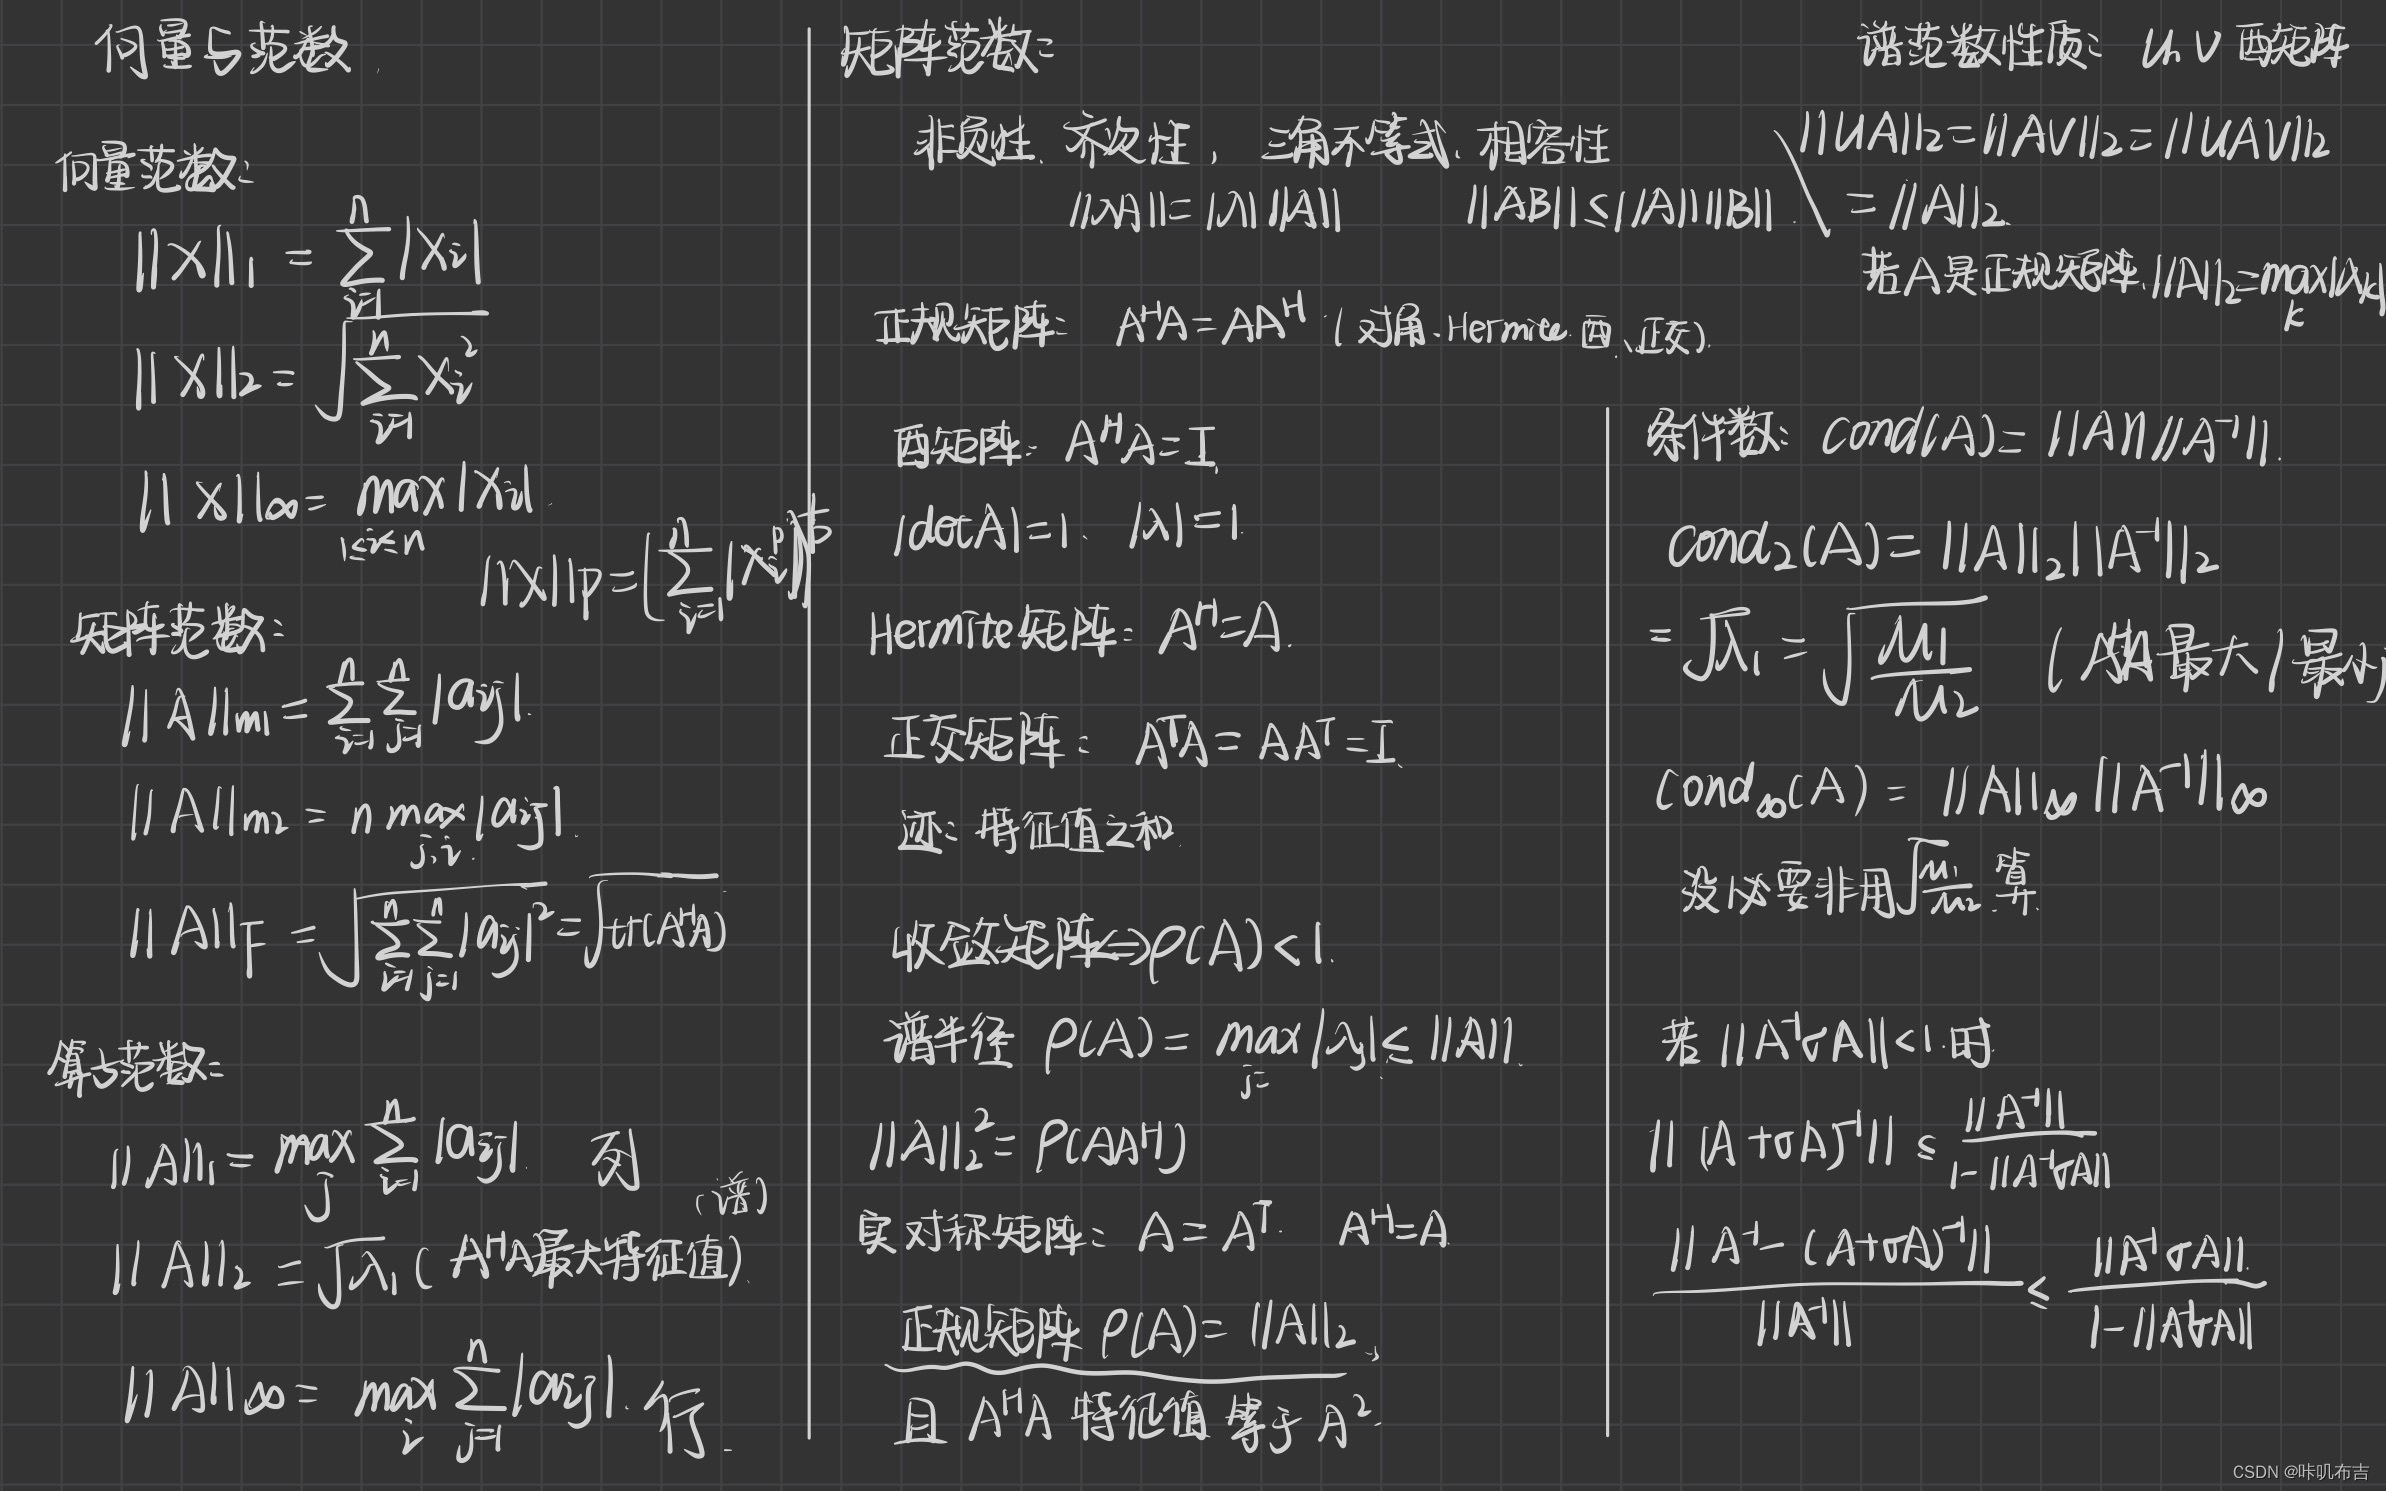 向量与范数
向量范数:
||X||₁ = ∑ᵢ₌₁ⁿ |Xᵢ|
||X||₂ = √(∑ᵢ₌₁ⁿ Xᵢ²)
||X||∞ = max |Xᵢ|
1≤i≤n
||X||p = (∑ᵢ₌₁ⁿ |Xᵢ|^p)^(1/p)
矩阵范数:
||A||m₁ = ∑ᵢ₌₁ⁿ ∑ⱼ₌₁ⁿ |aᵢⱼ|
||A||m₂ = n max |aᵢⱼ|
j,i
||A||F = √(∑ᵢ₌₁ⁿ ∑ⱼ₌₁ⁿ |aᵢⱼ|²) = √tr(AᴴA)
算子范数:
||A||₁ = maxⱼ ∑ᵢ₌₁ⁿ |aᵢⱼ| 列
(谱)
||A||₂ = √λ₁ ( AᴴA最大特征值)
||A||∞ = maxᵢ ∑ⱼ₌₁ⁿ |aᵢⱼ|. 行
矩阵范数:
非负性、齐次性, 三角不等式、相容性
||λA||=|λ| ||A|| ||AB||≤||A|| ||B||
正规矩阵: AᴴA=AAᴴ (对角、Hermite、酉、正交).
酉矩阵: AᴴA=I
|detA|=1、 |λ|=1.
Hermite矩阵: Aᴴ=A.
正交矩阵: AᵀA = AAᵀ=I
迹: 特征值之和
收敛矩阵⇔ρ(A)<1.
谱半径 ρ(A) = max |λⱼ| ≤ ||A||.
j=
||A||₂² = ρ(AAᴴ)
实对称矩阵: A = Aᵀ. Aᴴ=A
正规矩阵 ρ(A) = ||A||₂,
且 AᴴA 特征值 等于 A².
谱范数性质: U、V 酉矩阵
||UA||₂=||AV||₂=||UAV||₂
= ||A||₂
若A是正规矩阵,||A||₂=max|λₖ|
k
条件数: cond(A)= ||A|| ||A⁻¹||.
cond₂(A)= ||A||₂ ||A⁻¹||₂
= √λ₁ = √(μ₁/μ₂) (AᴴA 最大/最小)
cond∞(A) = ||A||∞ ||A⁻¹||∞
没必要非用√(μ₁/μ₂) 算.
若 ||A⁻¹σA||<1 时
||(A+σA)⁻¹|| ≤ ||A⁻¹|| / (1-||A⁻¹σA||)
||A⁻¹-(A+σA)⁻¹|| / ||A⁻¹|| ≤ ||A⁻¹σA|| / (1-||A⁻¹σA||)
CSDN @咔叽布吉